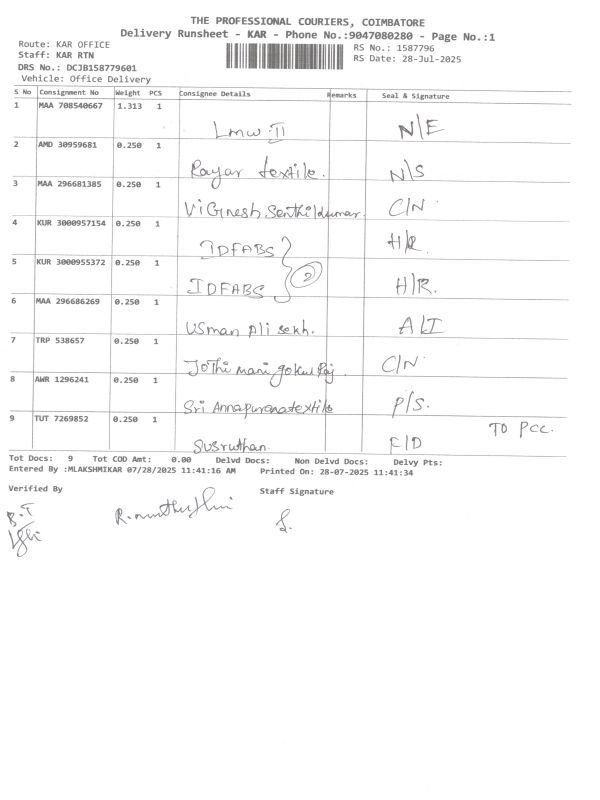 THE PROFESSIONAL COURIERS, COIMBATORE
Delivery Runsheet - KAR - Phone No.:9047080280 - Page No.:1
Route: KAR OFFICE
RS No.: 1587796
Staff: KAR RTN
RS Date: 28-Jul-2025
DRS No.: DCJB158779601
Vehicle: Office Delivery
S No Consignment No Weight PCS Consignee Details Remarks Seal & Signature
1 MAA 708540667 1.313 1 Lmw II N/E
2 AMD 30959681 0.250 1 Rayar textile. N/S
3 MAA 296681385 0.250 1 ViGnesh Senthilkumar. C/N
4 KUR 3000957154 0.250 1 IDFABS H/R
5 KUR 3000955372 0.250 1 IDFABS 2 H/R.
6 MAA 296686269 0.250 1 Usman Ali sekh. ALI
7 TRP 538657 0.250 1 Jothi mani gokul Raj. C/N
8 AWR 1296241 0.250 1 Sri Annapurana textile P/S.
9 TUT 7269852 0.250 1 Susruthan. F/D TO PCC.
Tot Docs: 9 Tot COD Amt: 0.00 Delvd Docs: Non Delvd Docs: Delvy Pts:
Entered By :MLAKSHMIKAR 07/28/2025 11:41:16 AM Printed On: 28-07-2025 11:41:34
Verified By
Staff Signature